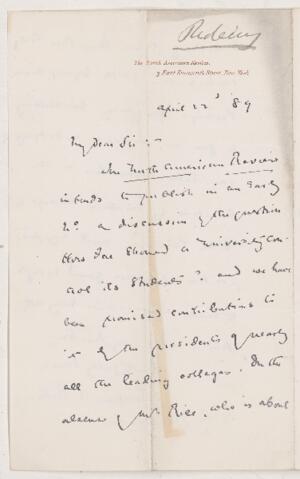 Redeing
The North American Review,
3 East Fourteenth Street, New York.
April 22d 89
My Dear Sir:-
The North American Review
intends to publish in an Early
No. a discussion of the question
How Far Should a University Con-
trol its Students? and we have
been promised contributions to
it by the presidents of nearly
all the leading colleges. In the
absence of Mr. Rice, who is about